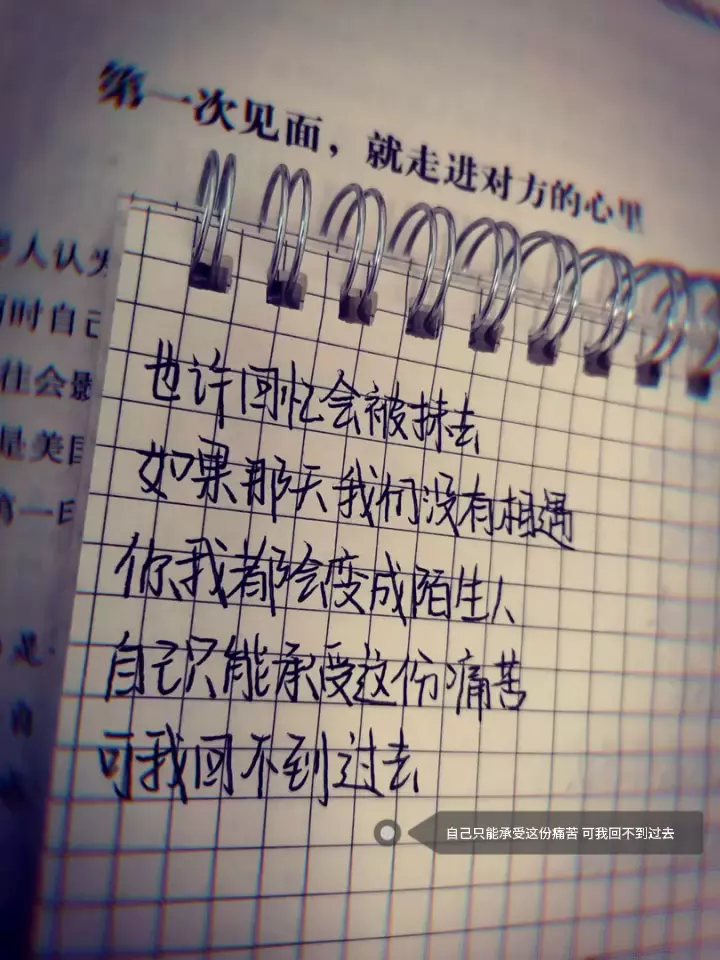 第一次见面，就走进对方的心里
人认为
时自己
往会影
是美国
第一日
是
也许回忆会被抹去
如果那天我们没有相遇
你我都会变成陌生人
自己只能承受这份痛苦
可我回不到过去
自己只能承受这份痛苦 可我回不到过去